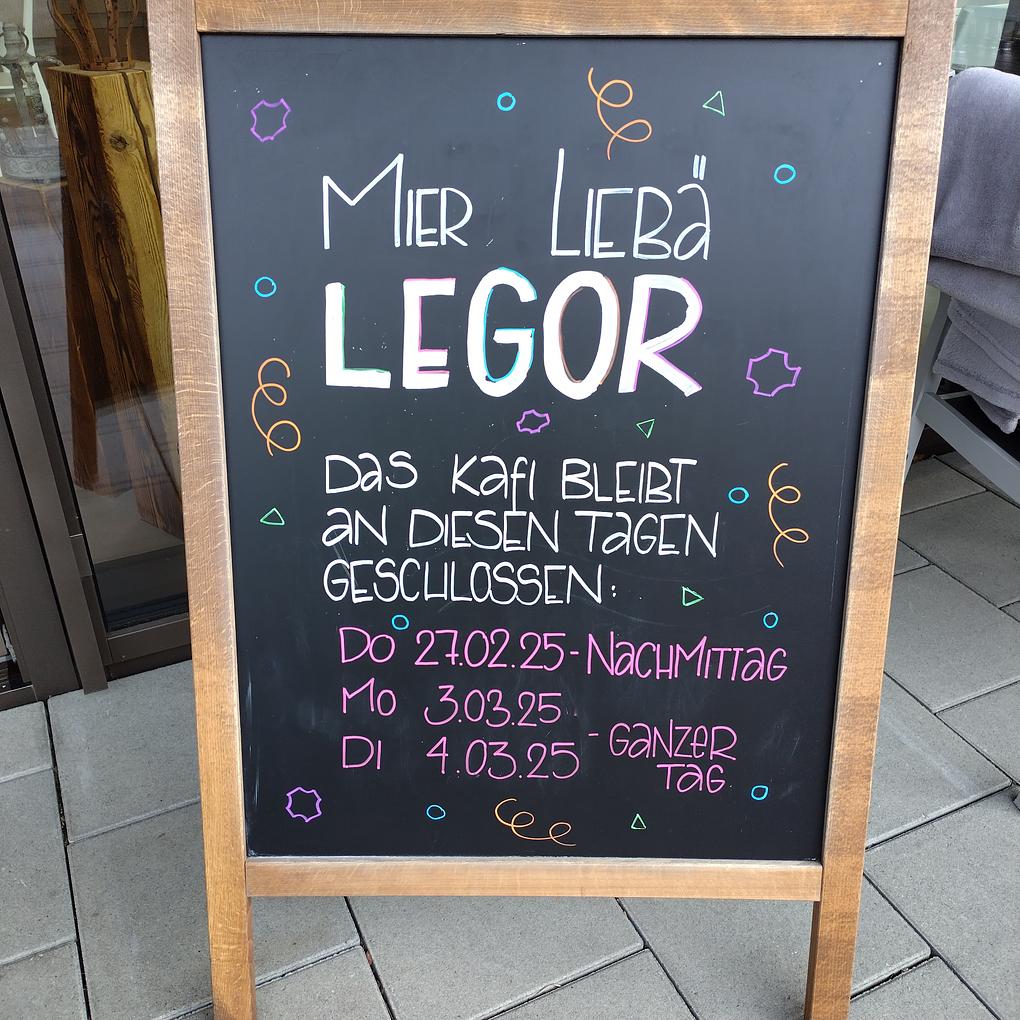 MIER LIEBÄ
LEGOR
Das Kafi BLEIBT
aN DIESEN TaGEN
GESCHLOSSEN:
Do 27.02.25 - NaCHMITTaG
Mo 3.03.25
DI 4.03.25 - GaNZER
TaG